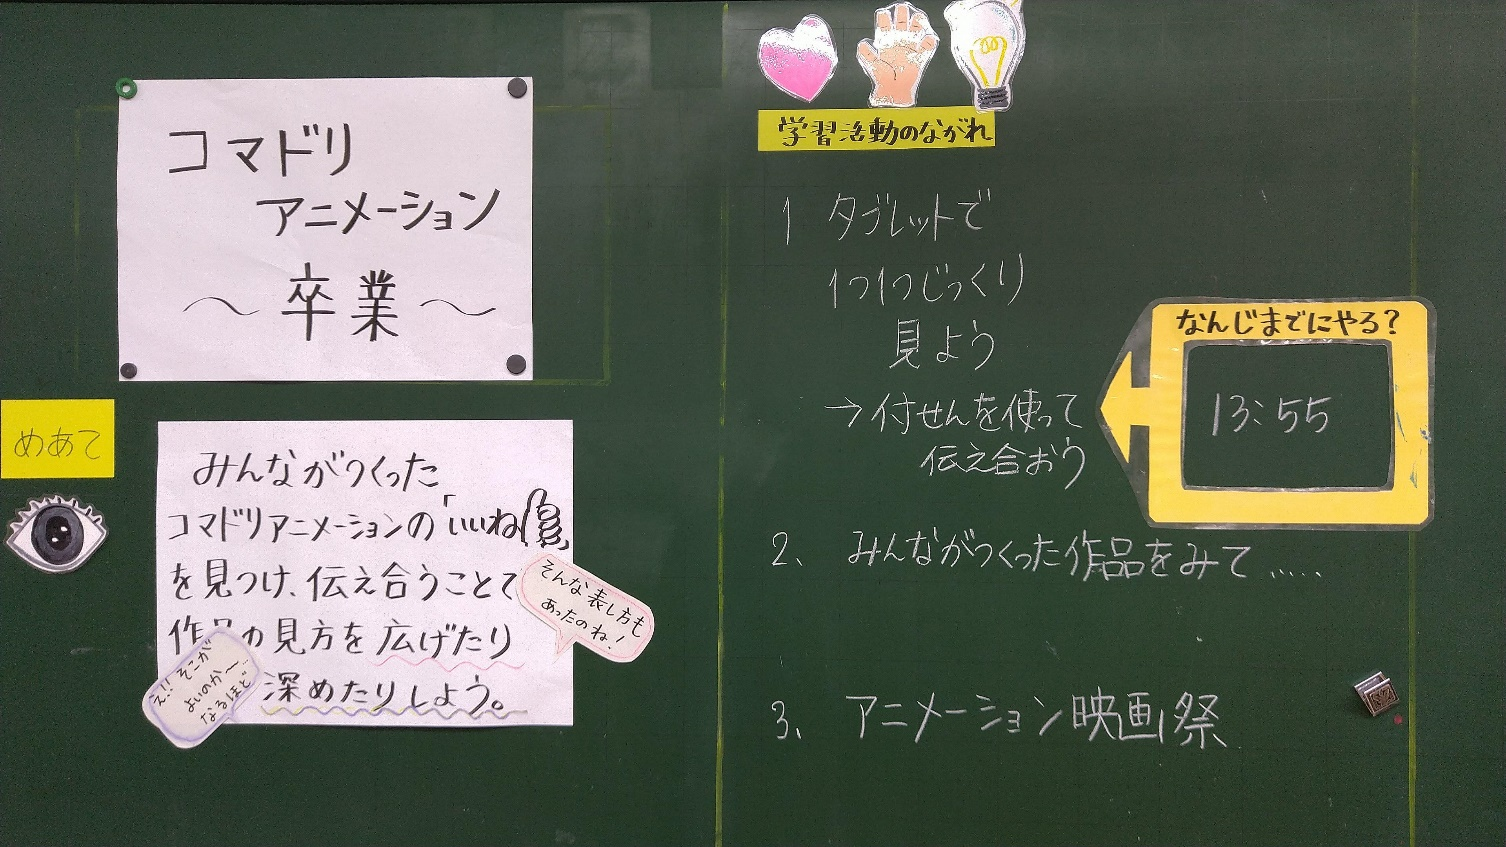 コマドリ
アニメーション
～卒業～
めあて
みんながつくった
コマドリアニメーションの「いいね
を見つけ、伝え合うことで
作品の見方を広げたり
深めたりしよう。
そんな表し方も
あったのね！
え!!そこが
よいのか〜…
なるほど
学習活動のながれ
1 タブレットで
1つ1つじっくり
見よう
→付せんを使って
伝え合おう
なんじまでにやる？
13:55
2、みんながつくった作品をみて……
3、アニメーション映画祭